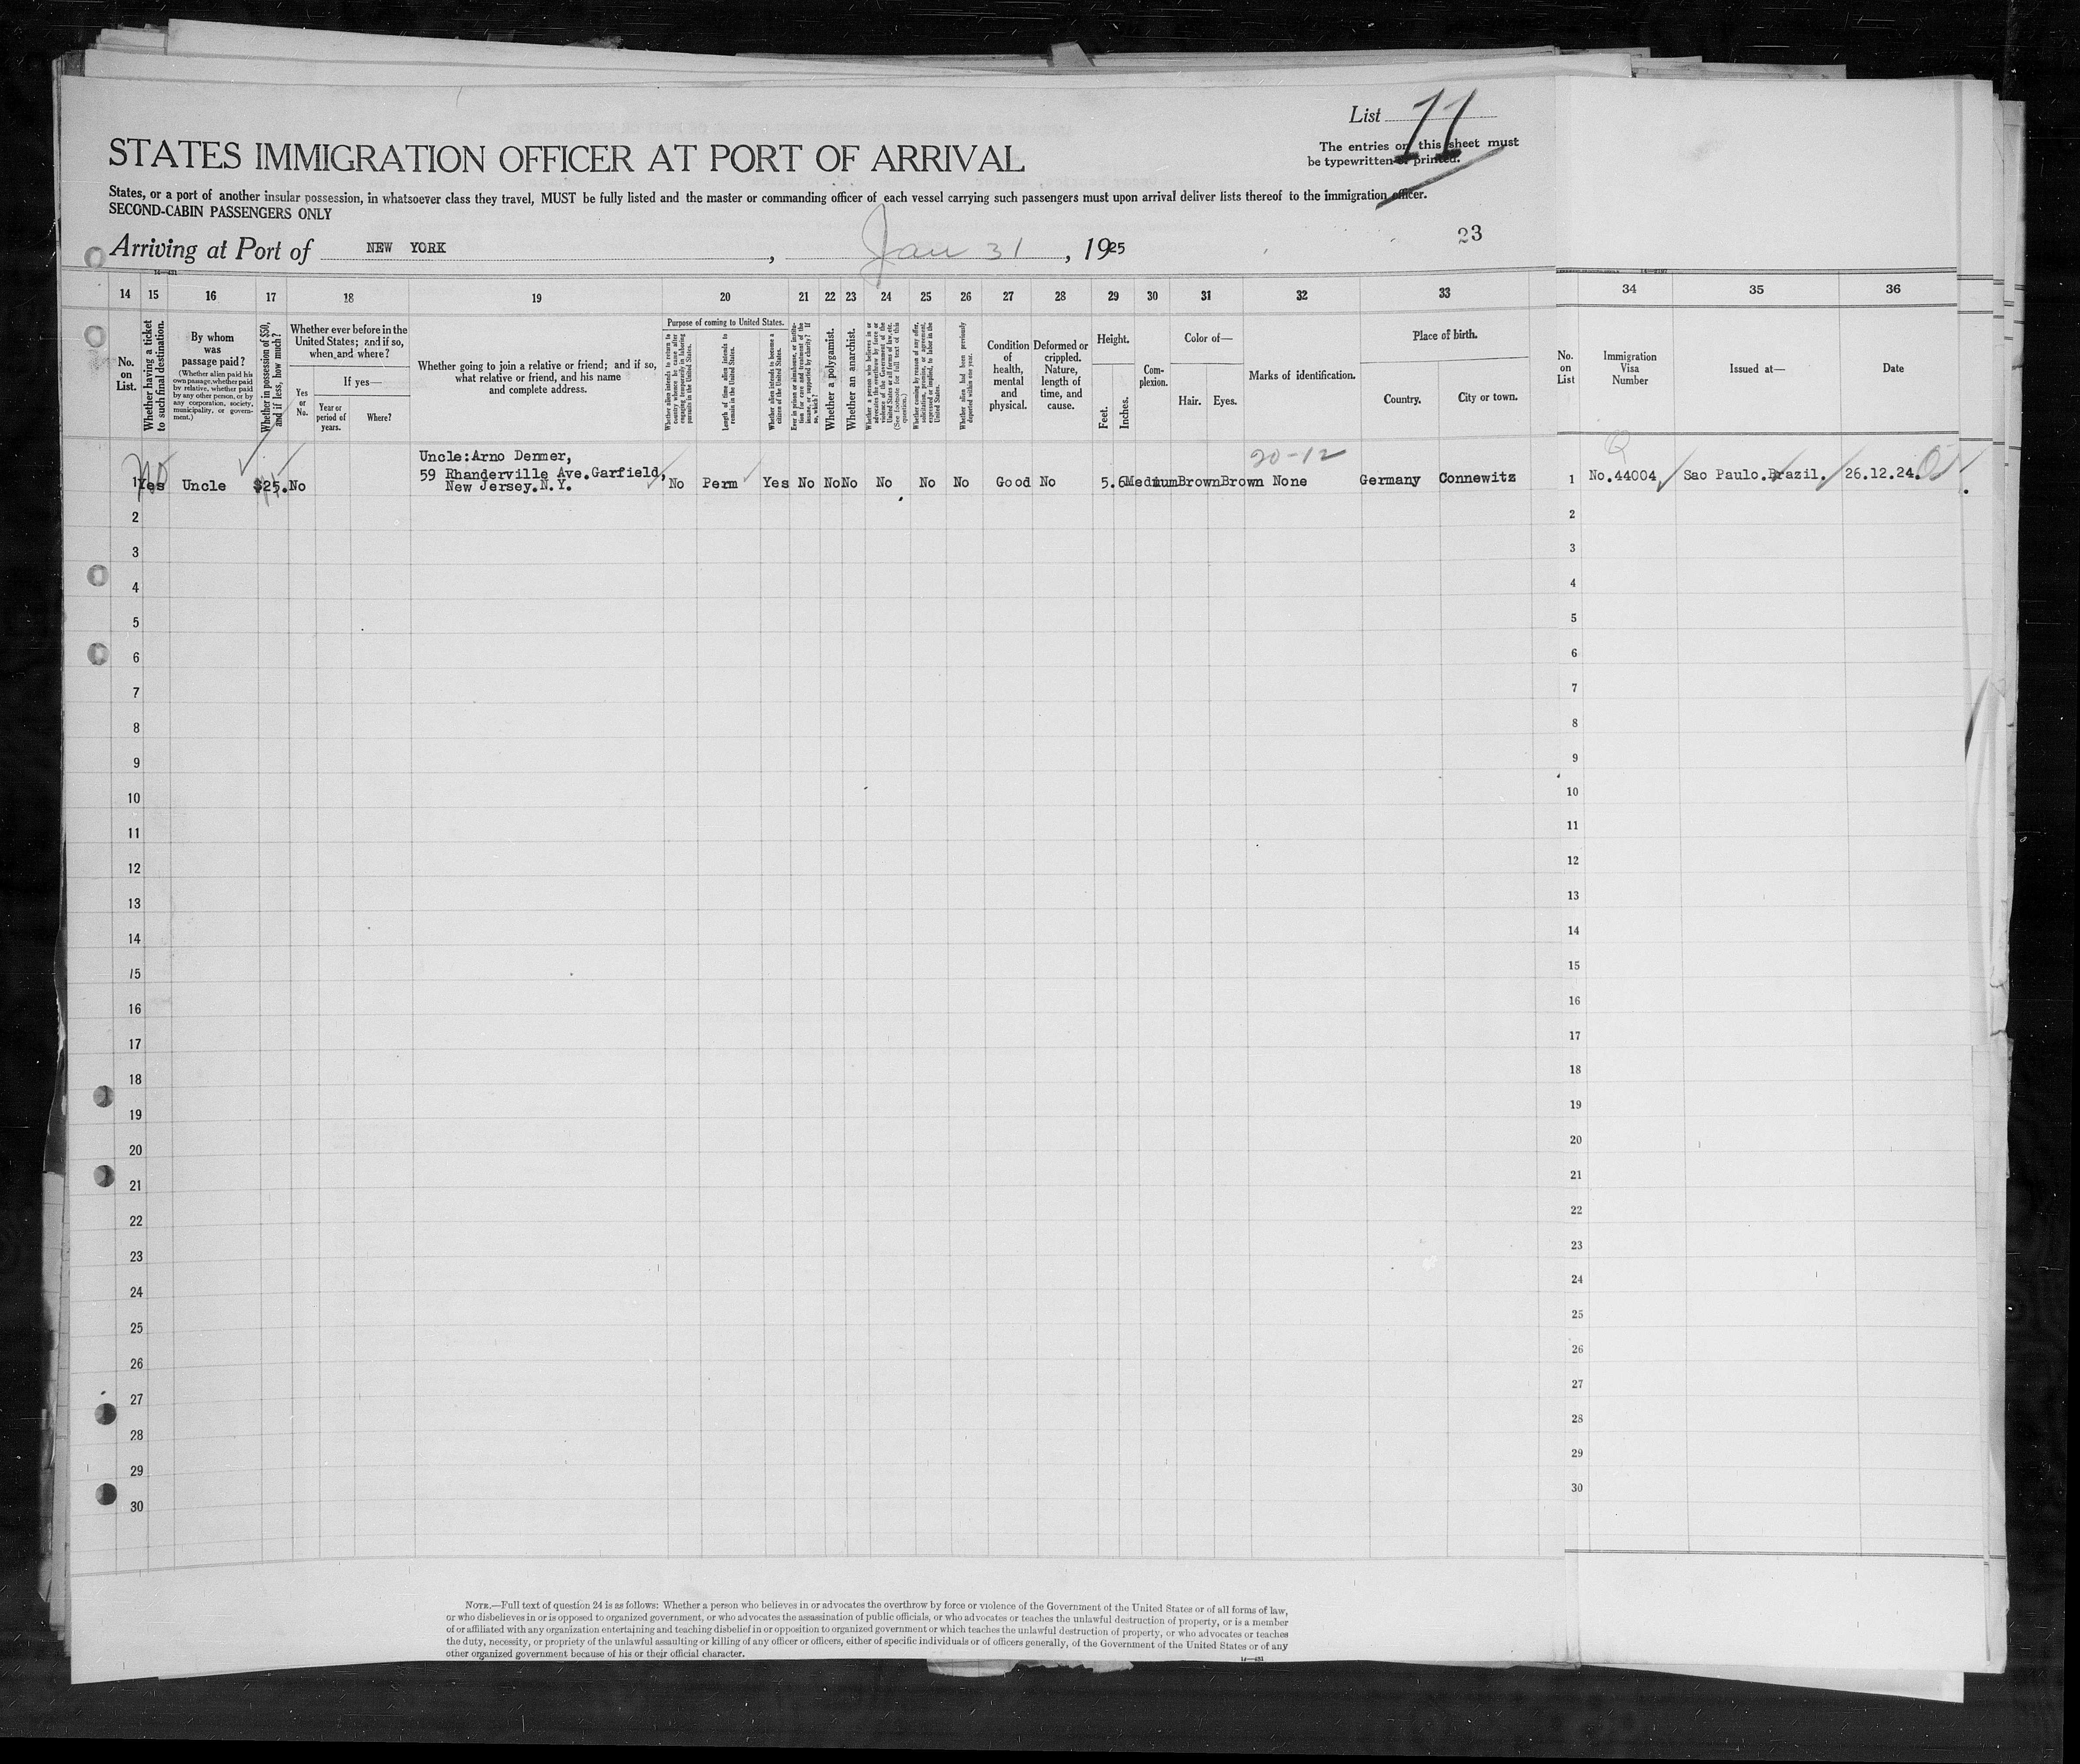 List 11
The entries on this sheet must
be typewritten or printed.
STATES IMMIGRATION OFFICER AT PORT OF ARRIVAL
States, or a port of another insular possession, in whatsoever class they travel, MUST be fully listed and the master or commanding officer of each vessel carrying such passengers must upon arrival deliver lists thereof to the immigration officer.
SECOND-CABIN PASSENGERS ONLY
Arriving at Port of NEW YORK, Jan 31, 1925
23
14 15 16 17 18 19 20 21 22 23 24 25 26 27 28 29 30 31 32 33 34 35 36
No. on List.
Whether having a ticket to such final destination.
By whom was passage paid?
(Whether alien paid his own passage, whether paid by relative, whether paid by any other person, or by any corporation, society, municipality, or government.)
Whether in possession of $50, and if less, how much?
Whether ever before in the United States; and if so, when and where?
Yes or No.
If yes—
Year or period of years.
Where?
Whether going to join a relative or friend; and if so, what relative or friend, and his name and complete address.
Purpose of coming to United States.
Whether alien intends to return to country whence he came after engaging temporarily in laboring pursuits in the United States.
Length of time alien intends to remain in the United States.
Whether alien intends to become a citizen of the United States.
Ever in prison or almshouse, or institution for care and treatment of the insane, or supported by charity? If so, which?
Whether a polygamist.
Whether an anarchist.
Whether a person who believes in or advocates the overthrow by force or violence of the Government of the United States or all forms of law, etc. (See footnote for full text of this question.)
Whether coming by reason of any offer, solicitation, promise, or agreement, expressed or implied, to labor in the United States.
Whether alien had been previously deported within one year.
Condition of health, mental and physical.
Deformed or crippled. Nature, length of time, and cause.
Height.
Feet. Inches.
Complexion.
Color of—
Hair. Eyes.
Marks of identification.
Place of birth.
Country. City or town.
No. on List
Immigration Visa Number
Issued at—
Date
20-12
Uncle:Arno Denmer,
59 Rhanderville Ave.Garfield,
New Jersey.N.Y.
1 No Yes Uncle $25. No No Perm Yes No No No No No No Good No 5.6 Medium Brown Brown None Germany Connewitz 1 No.44004 Sao Paulo.Brazil. 26.12.24.
2 2
3 3
4 4
5 5
6 6
7 7
8 8
9 9
10 10
11 11
12 12
13 13
14 14
15 15
16 16
17 17
18 18
19 19
20 20
21 21
22 22
23 23
24 24
25 25
26 26
27 27
28 28
29 29
30 30
NOTE.—Full text of question 24 is as follows: Whether a person who believes in or advocates the overthrow by force or violence of the Government of the United States or of all forms of law,
or who disbelieves in or is opposed to organized government, or who advocates the assassination of public officials, or who advocates or teaches the unlawful destruction of property, or is a member
of or affiliated with any organization entertaining and teaching disbelief in or opposition to organized government or which teaches the unlawful destruction of property, or who advocates or teaches
the duty, necessity, or propriety of the unlawful assaulting or killing of any officer or officers, either of specific individuals or of officers generally, of the Government of the United States or of any
other organized government because of his or their official character.
14—421